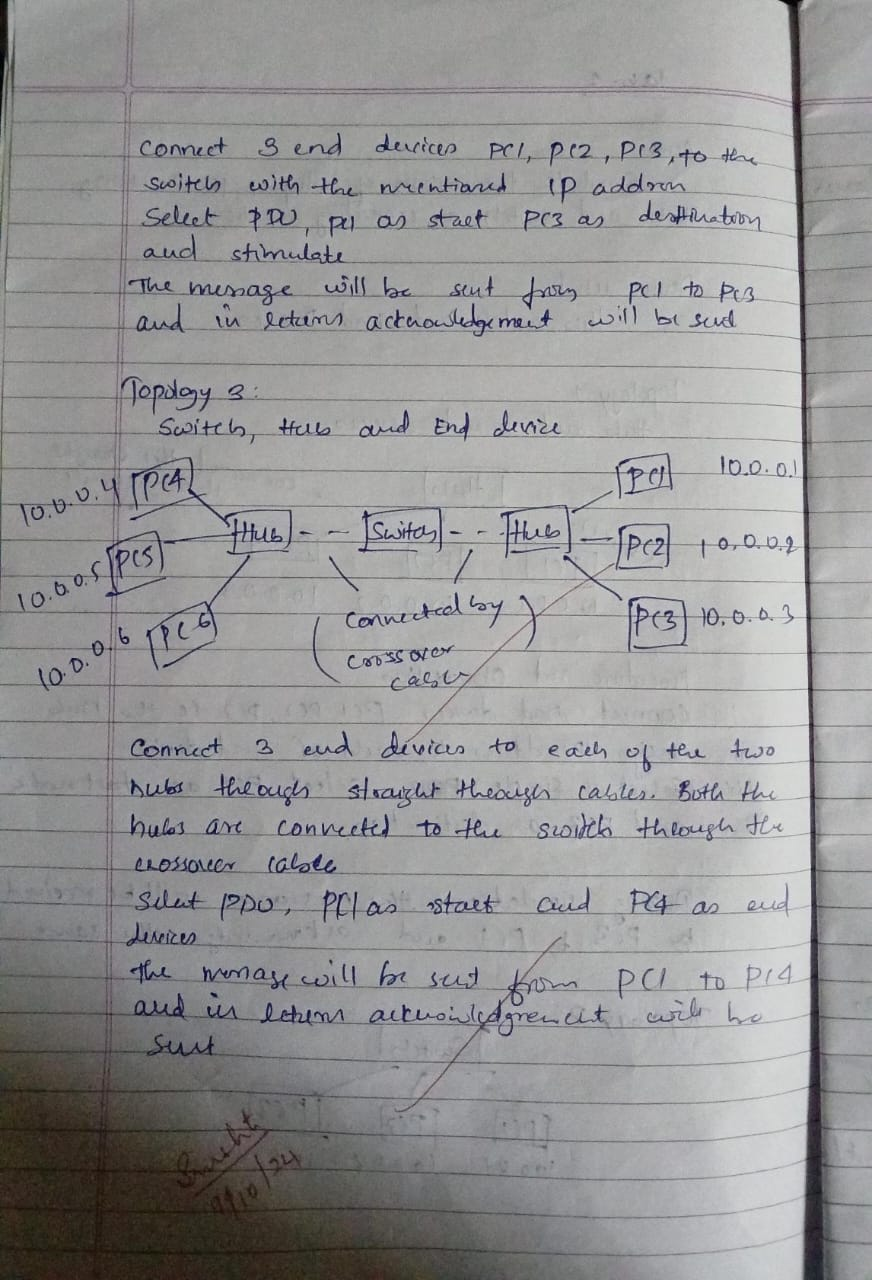 Connect 3 end devices PC1, PC2, PC3, to the
switch with the mentioned IP address
Select PDU, PC1 as start PC3 as destination
and stimulate
The message will be sent from PC1 to PC3
and in return acknowledgement will be sent
Topology 3:
Switch, Hub and End device
10.0.0.4 PC4
PC1 10.0.0.1
Hub Switch Hub
10.0.0.5 PC5
PC2 10.0.0.2
10.0.0.6 PC6
PC3 10.0.0.3
Connected by
crossover
cable
Connect 3 end devices to each of the two
hubs through straight through cables. Both the
hubs are connected to the switch through the
crossover cable
Select PDU, PC1 as start and PC4 as end
devices
The message will be sent from PC1 to PC4
and in return acknowledgement will be
sent
9/10/24